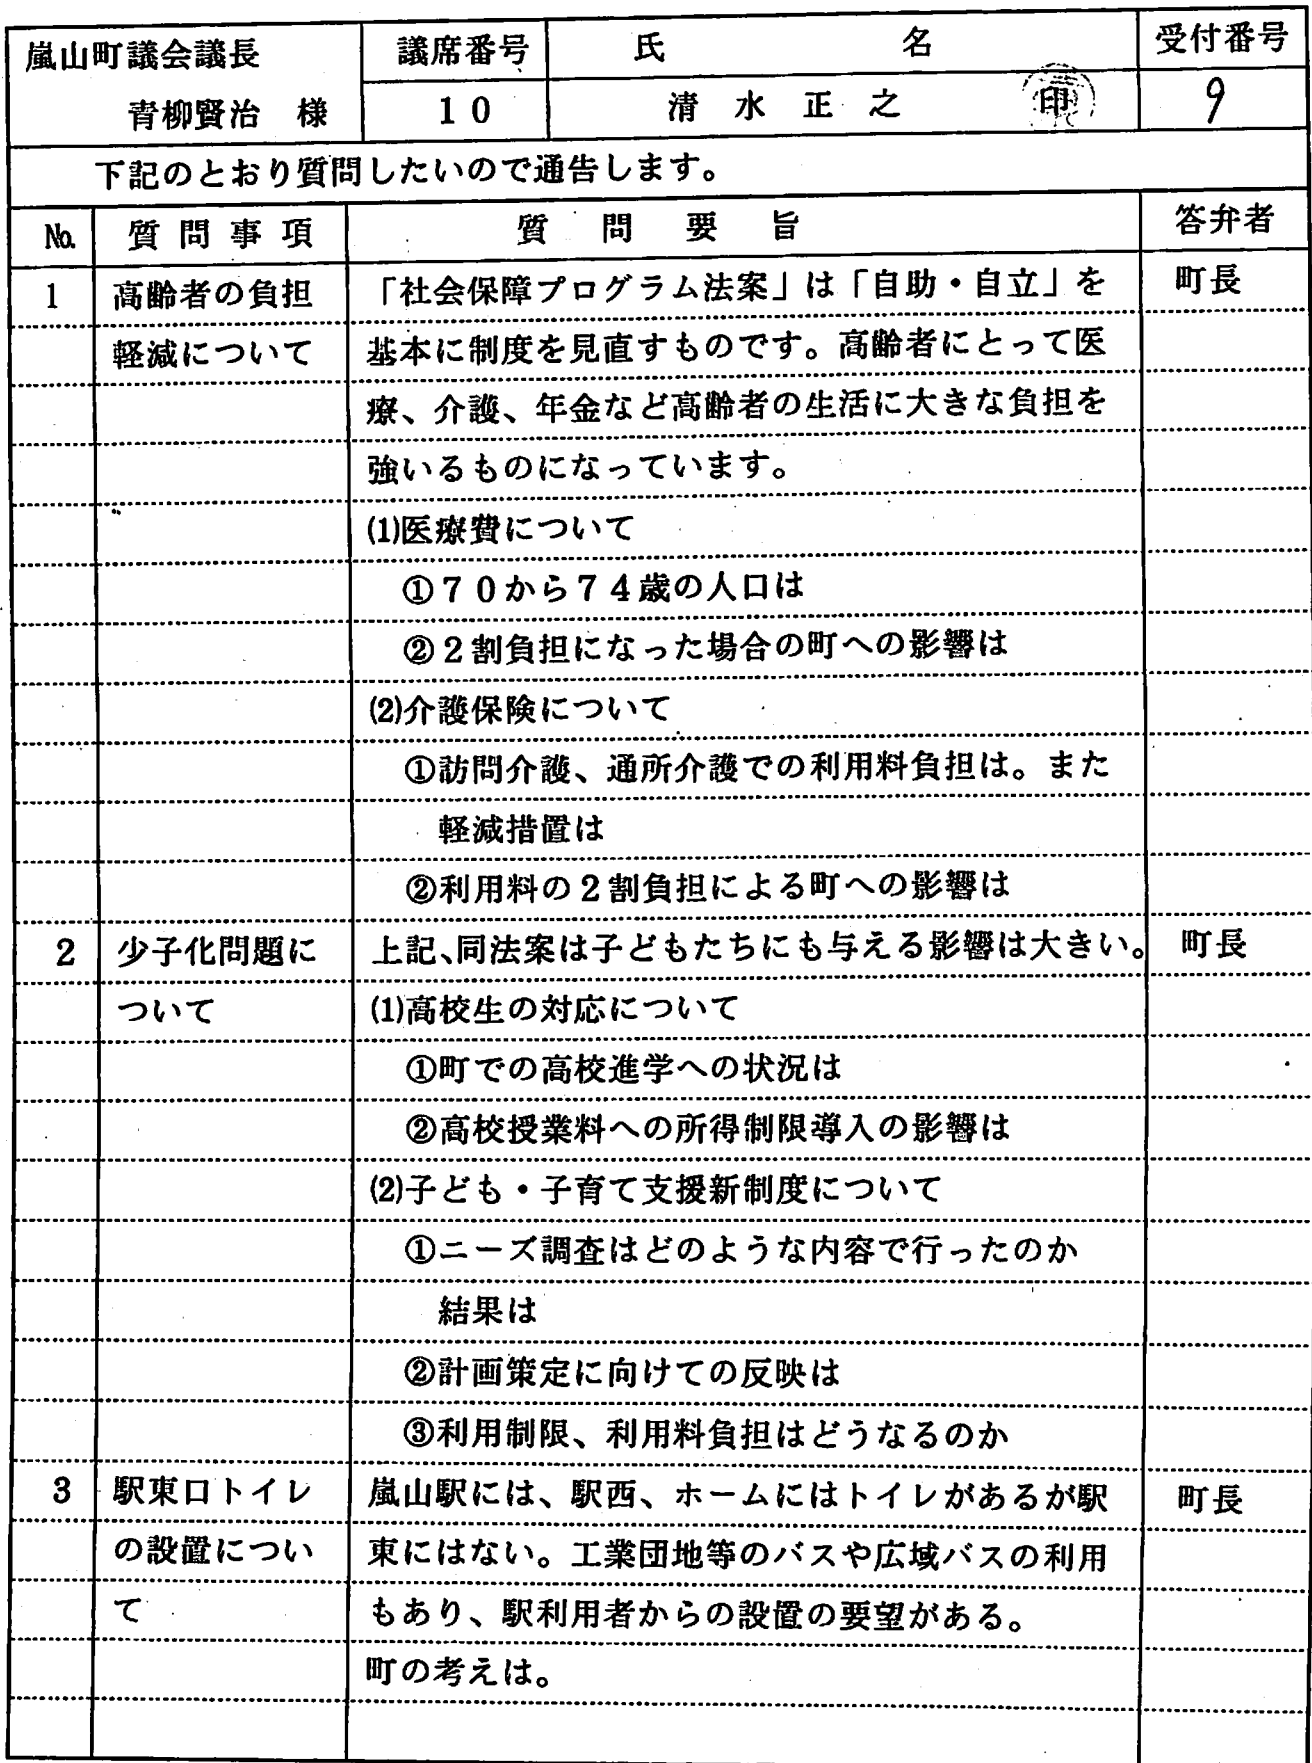 嵐山町議会議長 議席番号 氏 名 受付番号
青柳賢治 様 10 清水正之 印 9
下記のとおり質問したいので通告します。
№ 質問事項 質問要旨 答弁者
1 高齢者の負担 「社会保障プログラム法案」は「自助・自立」を 町長
軽減について 基本に制度を見直すものです。高齢者にとって医
療、介護、年金など高齢者の生活に大きな負担を
強いるものになっています。
⑴医療費について
①70から74歳の人口は
②2割負担になった場合の町への影響は
⑵介護保険について
①訪問介護、通所介護での利用料負担は。また
軽減措置は
②利用料の2割負担による町への影響は
2 少子化問題に 上記、同法案は子どもたちにも与える影響は大きい。 町長
ついて ⑴高校生の対応について
①町での高校進学への状況は
②高校授業料への所得制限導入の影響は
⑵子ども・子育て支援新制度について
①ニーズ調査はどのような内容で行ったのか
結果は
②計画策定に向けての反映は
③利用制限、利用料負担はどうなるのか
3 駅東口トイレ 嵐山駅には、駅西、ホームにはトイレがあるが駅 町長
の設置につい 東にはない。工業団地等のバスや広域バスの利用
て もあり、駅利用者からの設置の要望がある。
町の考えは。